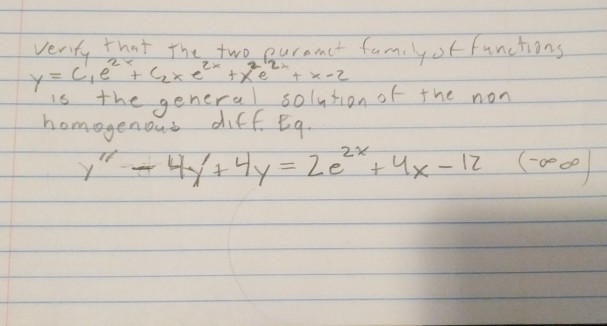 Verify that the two paramet family of functions
y = C₁e²ˣ + C₂xe²ˣ + x²e²ˣ + x - 2
is the general solution of the non
homogenous diff. Eq.
y'' - 4y' + 4y = 2e²ˣ + 4x - 12 (-∞ ∞)